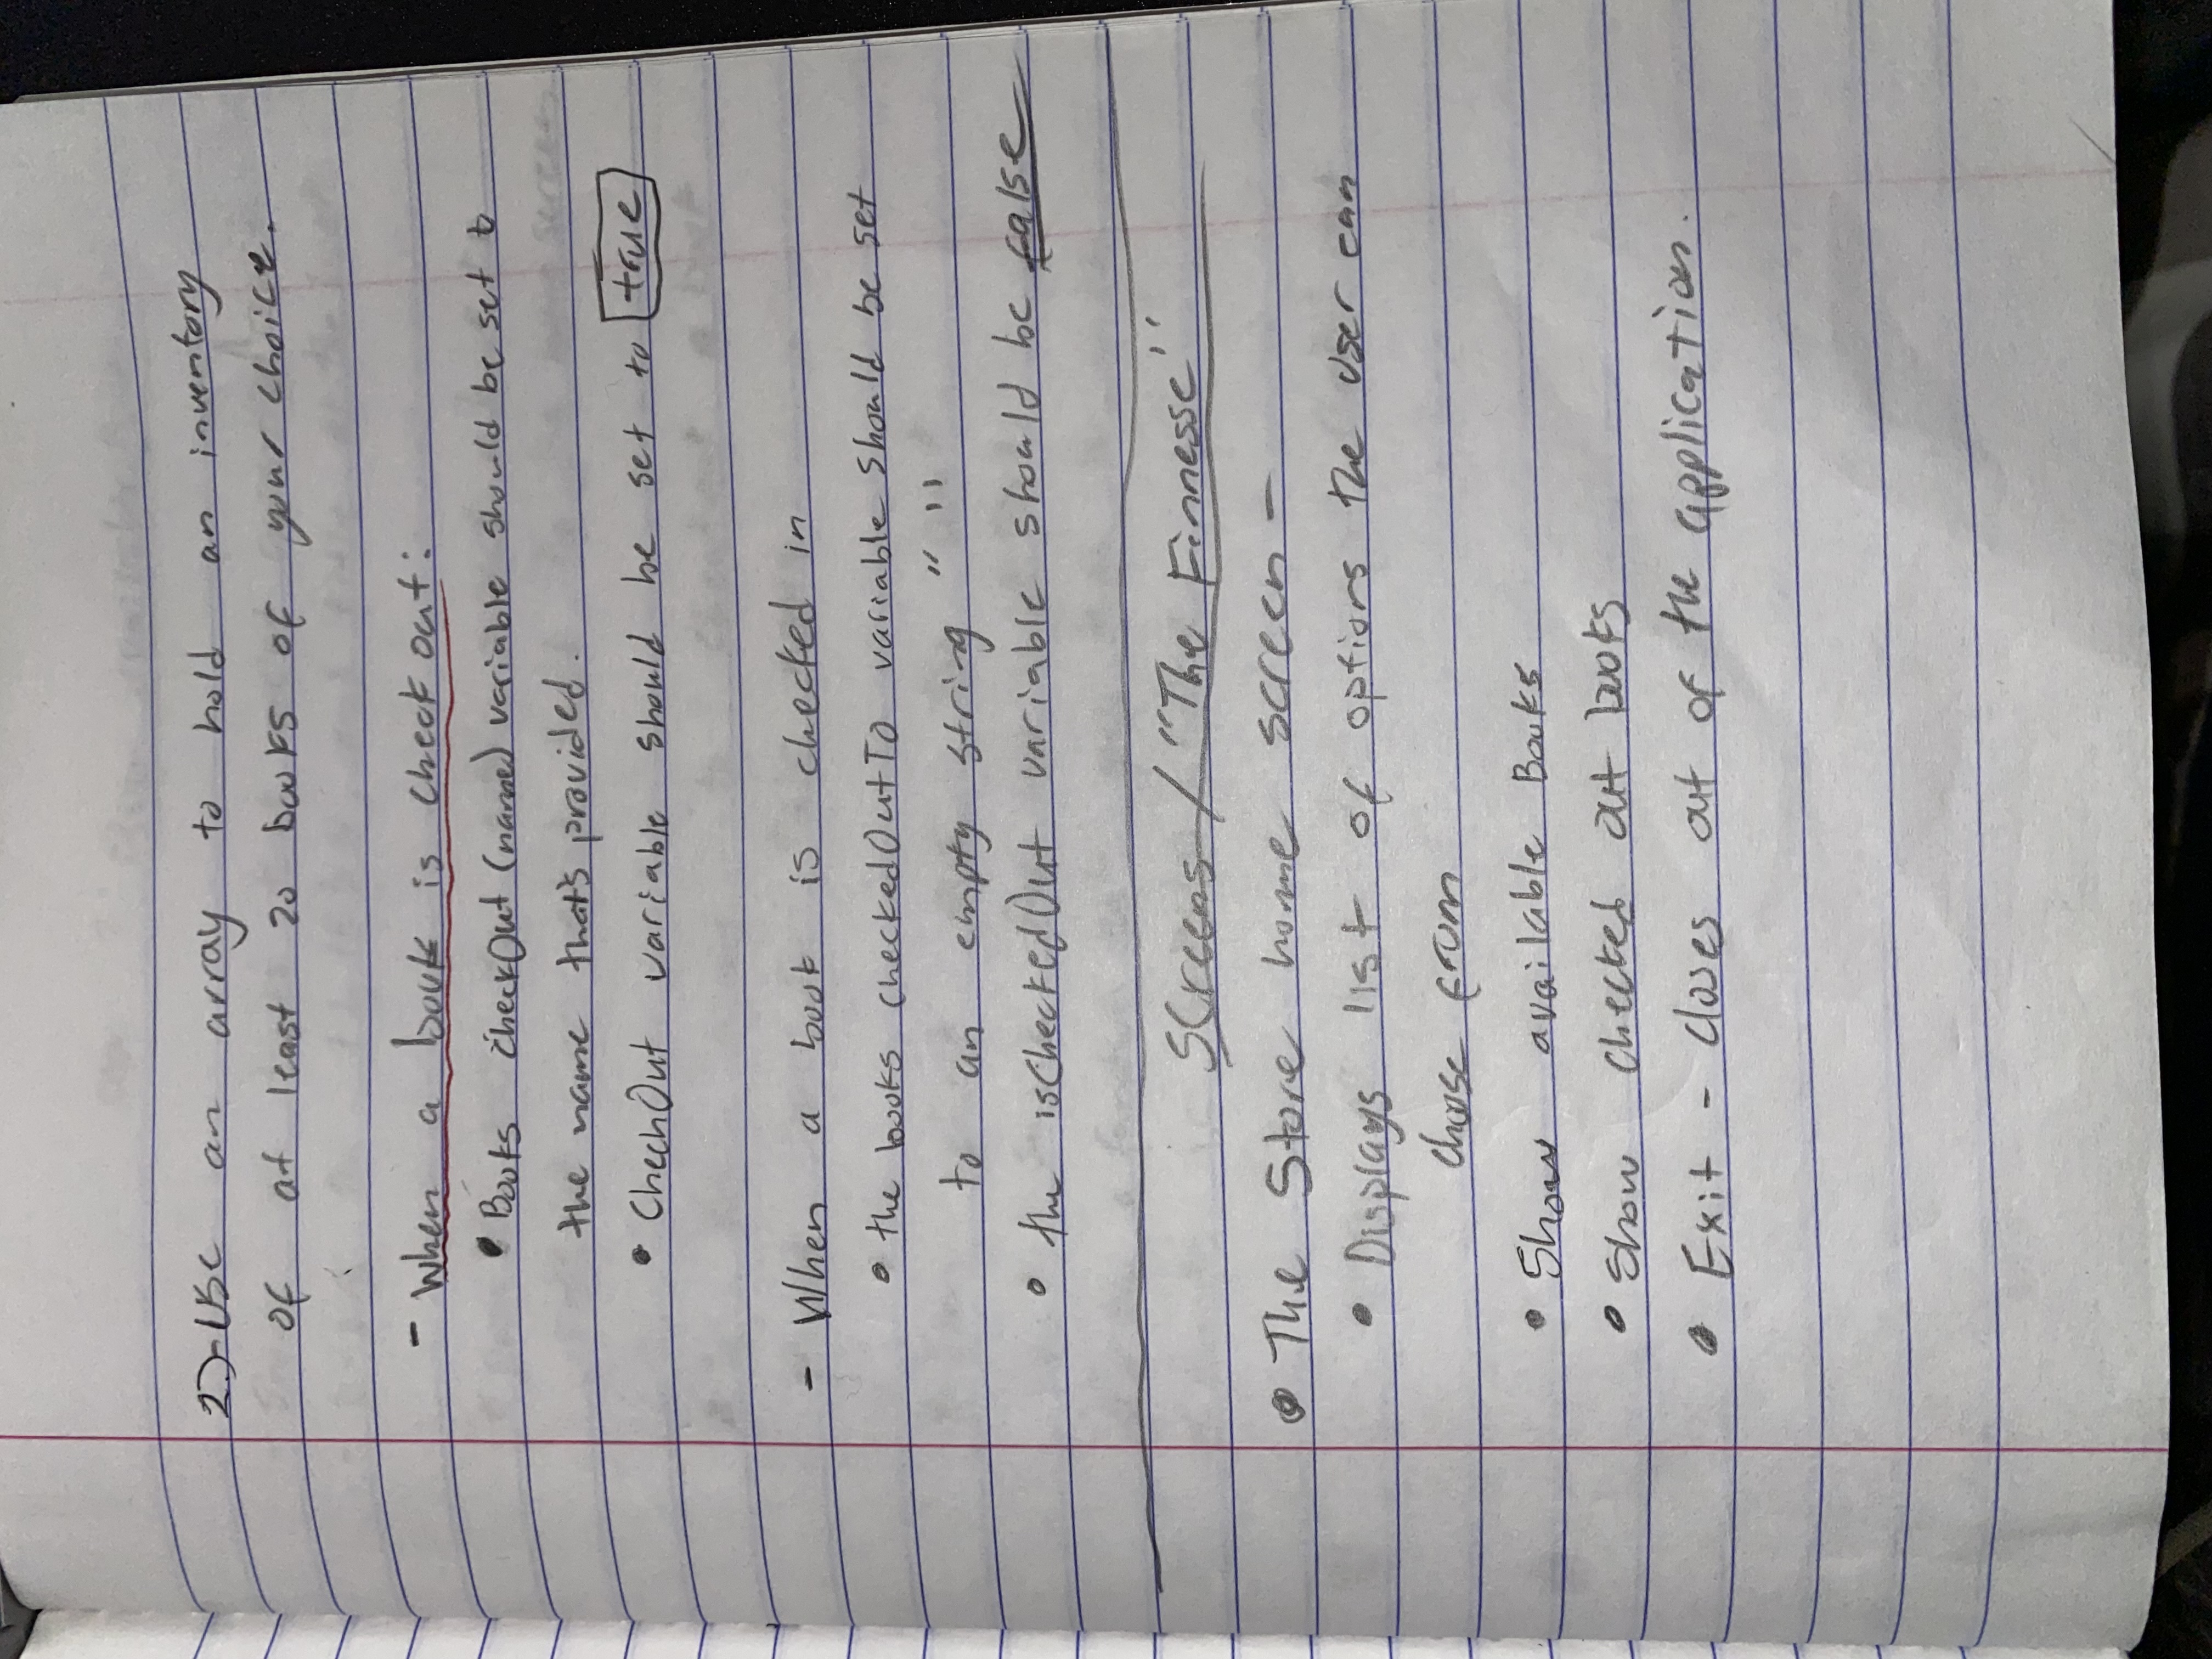 2.)-Use an array to hold an inventory
of at least 20 books of your choice.
- When a book is check out:
• Books checkOut (name) variable should be set to
the name that's provided.
• CheckOut variable should be set to true
- When a book is checked in
• the books checkedOutTo variable should be set
to an empty string " "
• the isCheckedOut variable should be false
Screens / "The Finnesse"
• The Store home screen -
• Displays list of options the user can
choose from
• Show available Books
• Show checked out books
• Exit - closes out of the application.